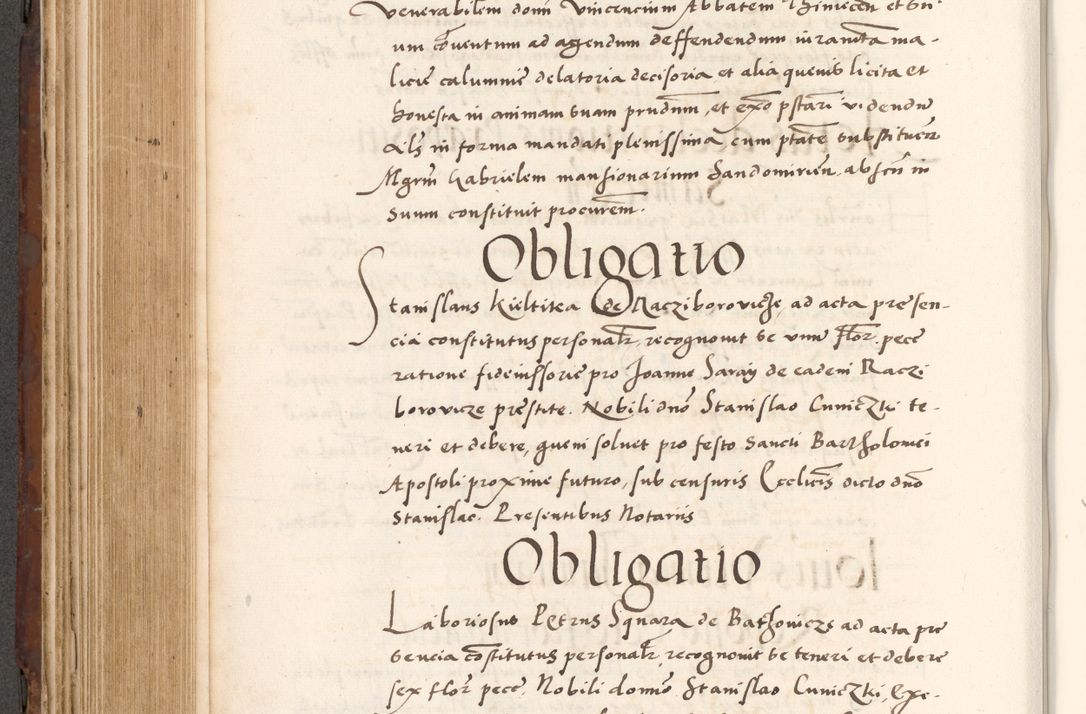 Venerabilem domi Vincencium Abbatem
um cōventum ad agendum deffendendum iurandā ma-
licie calumnie delatoria decisoria et alia quenis licita et
honesta in animam suam prndūm, et exō pstāri videndū
Als in forma mandati plenissima cum ptāte substituēn
Mgrm Gabrielem mansionarium Sandomirien, absen in
suum constituit procurem.
Obligatio
Stanislaus Kieltitca de Racziborovicze, ad acta presen-
cia constitutus personalr, recognouit se vnū Flor. pecc
ratione fideiussorie pro Joanne Saray de eadem Raczi
borovicze prestite. Nobili dnō Stanislao Cuniczki te-
neri et debere, quem soluet pro festo Sancti Bartholomei
Apostoli proxime futuro, sub censuris Ecclicis dicto dnō
Stanislao. Presentibus Notariis
Obligatio
Laboriosus Petrus Squara de Bathovicze ad acta pre
sencia cōstitutus personalr, recognouit se teneri et debere
sex flor pecc, Nobili domō Stanislao Cuniczki, Exe-